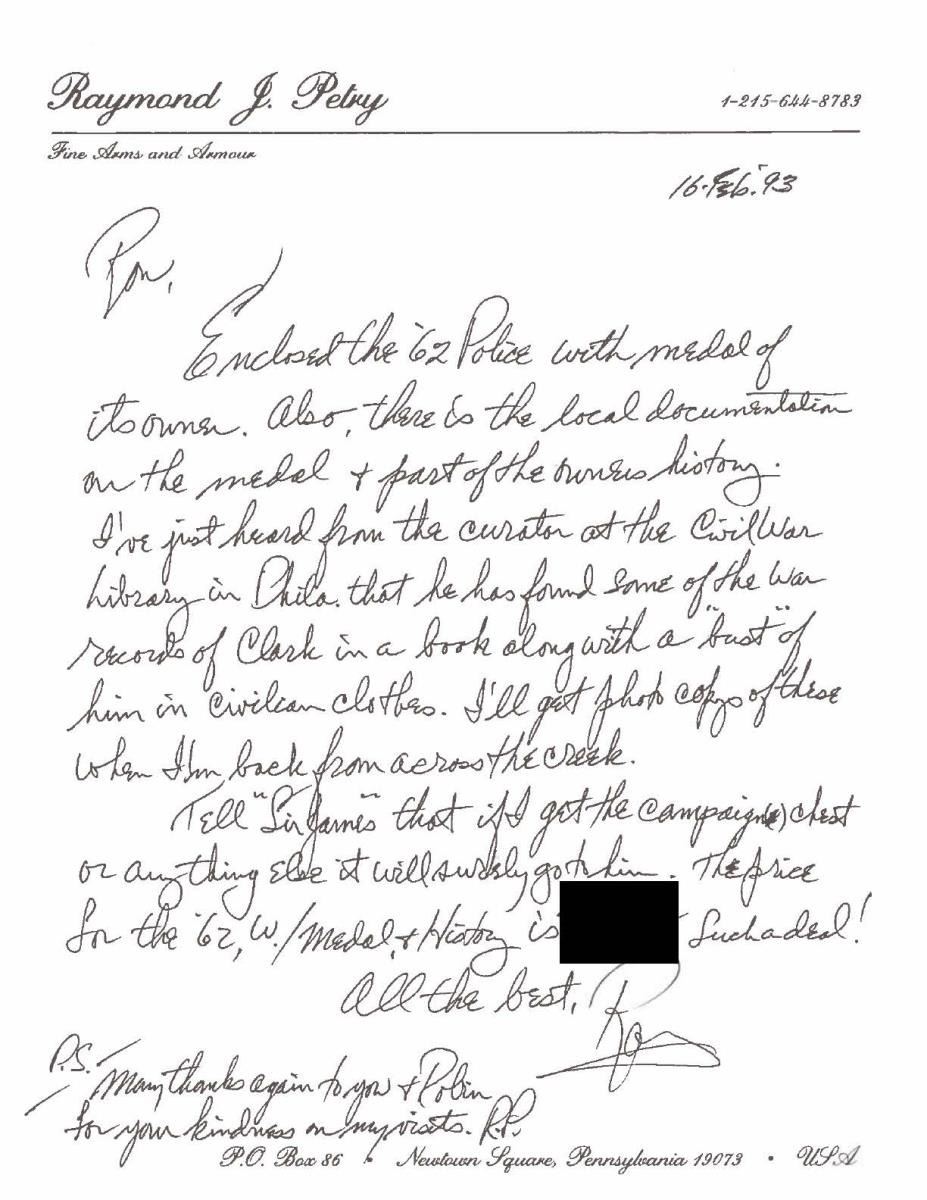 Raymond J. Petry
1-215-644-8783
Fine Arms and Armour
16. Feb. '93
Ron,
Enclosed the '62 Police with medal of
its owner. Also, there is the local documentation
on the medal + part of the owners history.
I've just heard from the curator at the Civil War
Library in Phila. that he has found some of the war
records of Clark in a book along with a "bust" of
him in civilian clothes. I'll get photo copys of these
when I'm back from across the creek.
Tell "Sir James" that if I get the campaign(s) chest
or anything else it will surely go to him. The price
for the '62, W./Medal, + History is Such a deal!
All the best,
Ray
P.S.
Many thanks again to you + Robin
for your kindness on my visits. R.P.
P.O. Box 86 • Newtown Square, Pennsylvania 19073 • USA